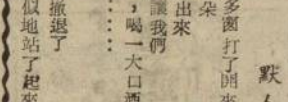 默
多 打了開來
朵
出來
讓我們
；喝一大口酒
……
撤退了
似地站了起來